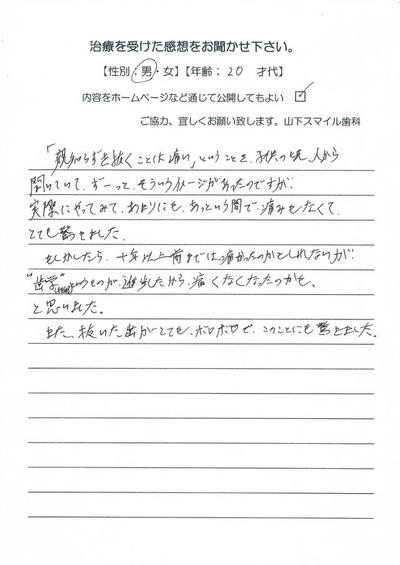 治療を受けた感想をお聞かせ下さい。
【性別:男・女】【年齢:20 才代】
内容をホームページなど通じて公開してもよい ☑
ご協力、宜しくお願い致します。山下スマイル歯科
「親知らずを抜くことは痛い」ということを、子供の頃、人から
聞いていて、ずーっと、そういうイメージがあったのですが、
実際にやってみて、あまりにも、あっという間で、痛みもなくて、
とても驚きました。
もしかしたら、十年以上前までは痛かったのかもしれないが、
"歯学"というものが、進歩したから、痛くなくなったのかも、
と思いました。
また、抜いた歯がとても、ボロボロで、このことにも驚きました。